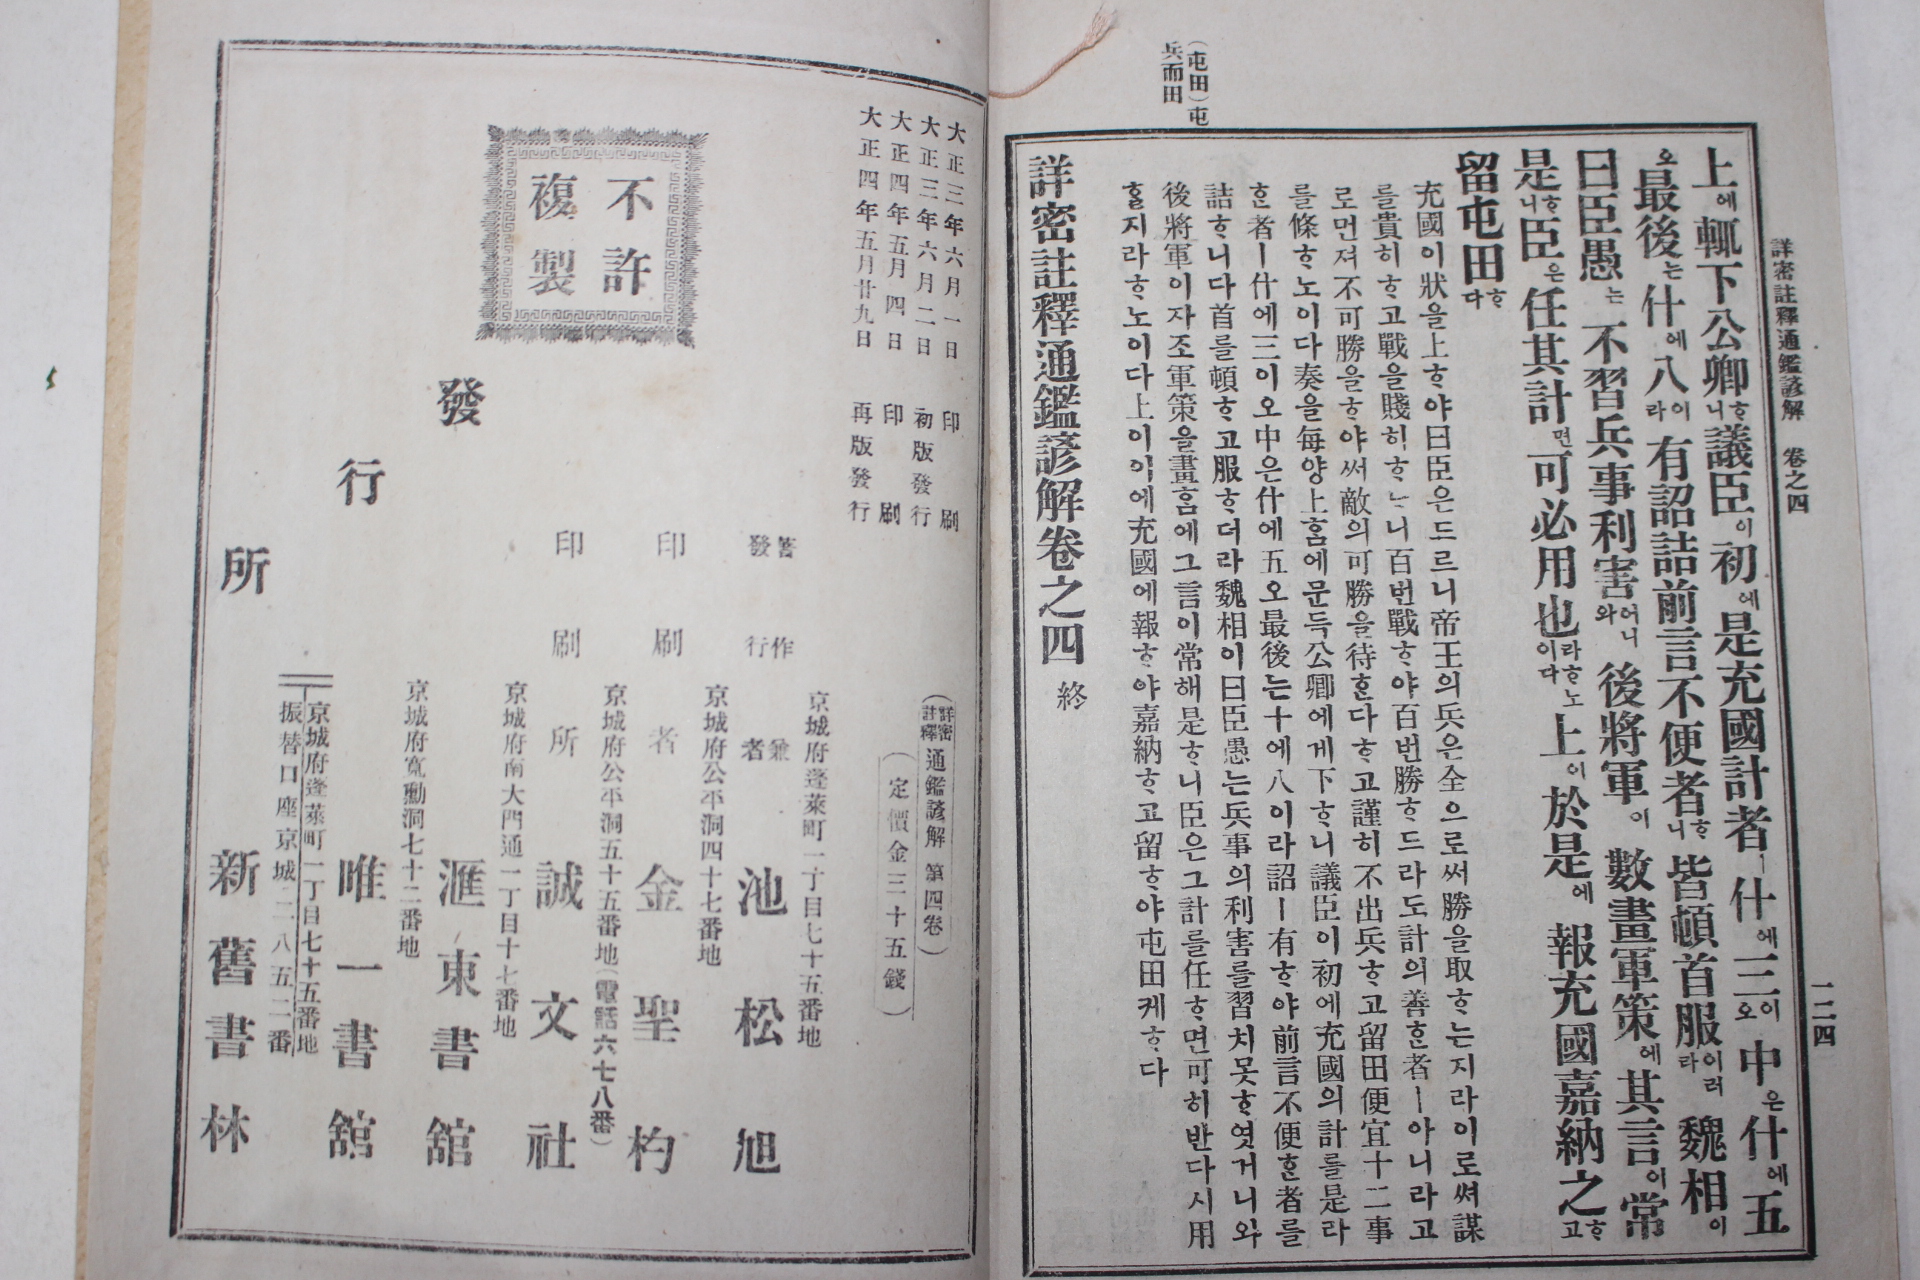 (屯田)屯
兵而田
詳密註釋通鑑諺解 卷之四
一二四
上에輒下公卿ᄒᆞ니議臣이初에是充國計者ㅣ什에三이오中은什에五
오最後는什에八이라有詔詰前言不便者ᄒᆞ니皆頓首服이러라魏相이
曰臣愚는不習兵事利害와어니後將軍이數畫軍策에其言이常
是ᄒᆞ니臣은任其計면可必用也라ᄒᆞ노이다上이於是에報充國嘉納之ᄒᆞ고
留屯田ᄒᆞ다
充國이狀을上ᄒᆞ야曰臣은드르니帝王의兵은全으로써勝을取ᄒᆞ는지라이로써謀
를貴히ᄒᆞ고戰을賤히ᄒᆞᄂᆞ니百번戰ᄒᆞ야百번勝ᄒᆞ드라도計의善ᄒᆞᆫ者ㅣ아니라고
로먼져不可勝을ᄒᆞ야써敵의可勝을待ᄒᆞᆫ다ᄒᆞ고謹히不出兵ᄒᆞ고留田便宜十二事
를條ᄒᆞ노이다奏을每양上ᄒᆞᆷ에문득公卿에게下ᄒᆞ니議臣이初에充國의計를是라
ᄒᆞᆫ者ㅣ什에三이오中은什에五오最後는十에八이라詔ㅣ有ᄒᆞ야前言不便ᄒᆞᆫ者를
詰ᄒᆞ니다首를頓ᄒᆞ고服ᄒᆞ더라魏相이曰臣愚는兵事의利害를習치못ᄒᆞ엿거니와
後將軍이자조軍策을畫ᄒᆞᆷ에그言이常해是ᄒᆞ니臣은그計를任ᄒᆞ면可히반다시用
ᄒᆞᆯ지라ᄒᆞ노이다上이이에充國에報ᄒᆞ야嘉納ᄒᆞ고留ᄒᆞ야屯田케ᄒᆞ다
詳密註釋通鑑諺解卷之四 終
大正三年六月一日 印刷
大正三年六月二日 初版發行
大正四年五月四日 印刷
大正四年五月廿九日 再版發行
不許
複製
(詳密註釋通鑑諺解 第四卷)
(定價金三十五錢)
京城府蓬萊町一丁目七十五番地
著作兼
發行者 池松旭
京城府公平洞四十七番地
印刷者 金聖杓
京城府公平洞五十五番地(電話六七八番)
印刷所 誠文社
京城府南大門通一丁目十七番地
滙東書舘
京城府寬勳洞七十二番地
唯一書舘
京城府蓬萊町一丁目七十五番地
振替口座京城二八五二番
新舊書林
發行所